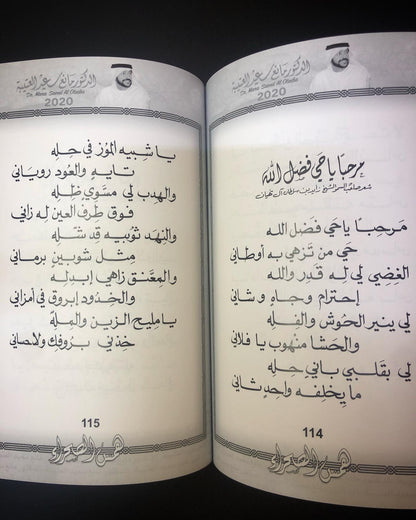 الدكتور مانع سعيد العتيبة
Dr. Mana Saeed Al Otaiba
2020
مرحبًا يا حي فضل الله
شعر صاحب السمو الشيخ زايد بن سلطان آل نهيان
مَرحبـا يا حَي فَضل الله
حَي من تَزهي به أوطاني
الغِضِي لي له قَدِر والله
إحترام وجاهٍ و شاني
لي ينير الحوش والفِله
والحَشا منهوب يا فلاني
لي بقلبي باني حِله
ما يخلفه واحدٍ ثاني
114
همس الصحراء
الدكتور مانع سعيد العتيبة
Dr. Mana Saeed Al Otaiba
2020
يا شبيه الموز في حِله
تايه والعُود روياني
والهدب لي مسَوي ظِله
فوق طَرف العين له زاني
والنهَد ثوبيه قِد شَله
مِثل شوبين برماني
والمِعَنق زاهي إبدله
والخدود إبروق في أمزاني
يا مليح الزين والمِلّه
خِذني بروفك ولا حصاني
115
همس الصحراء